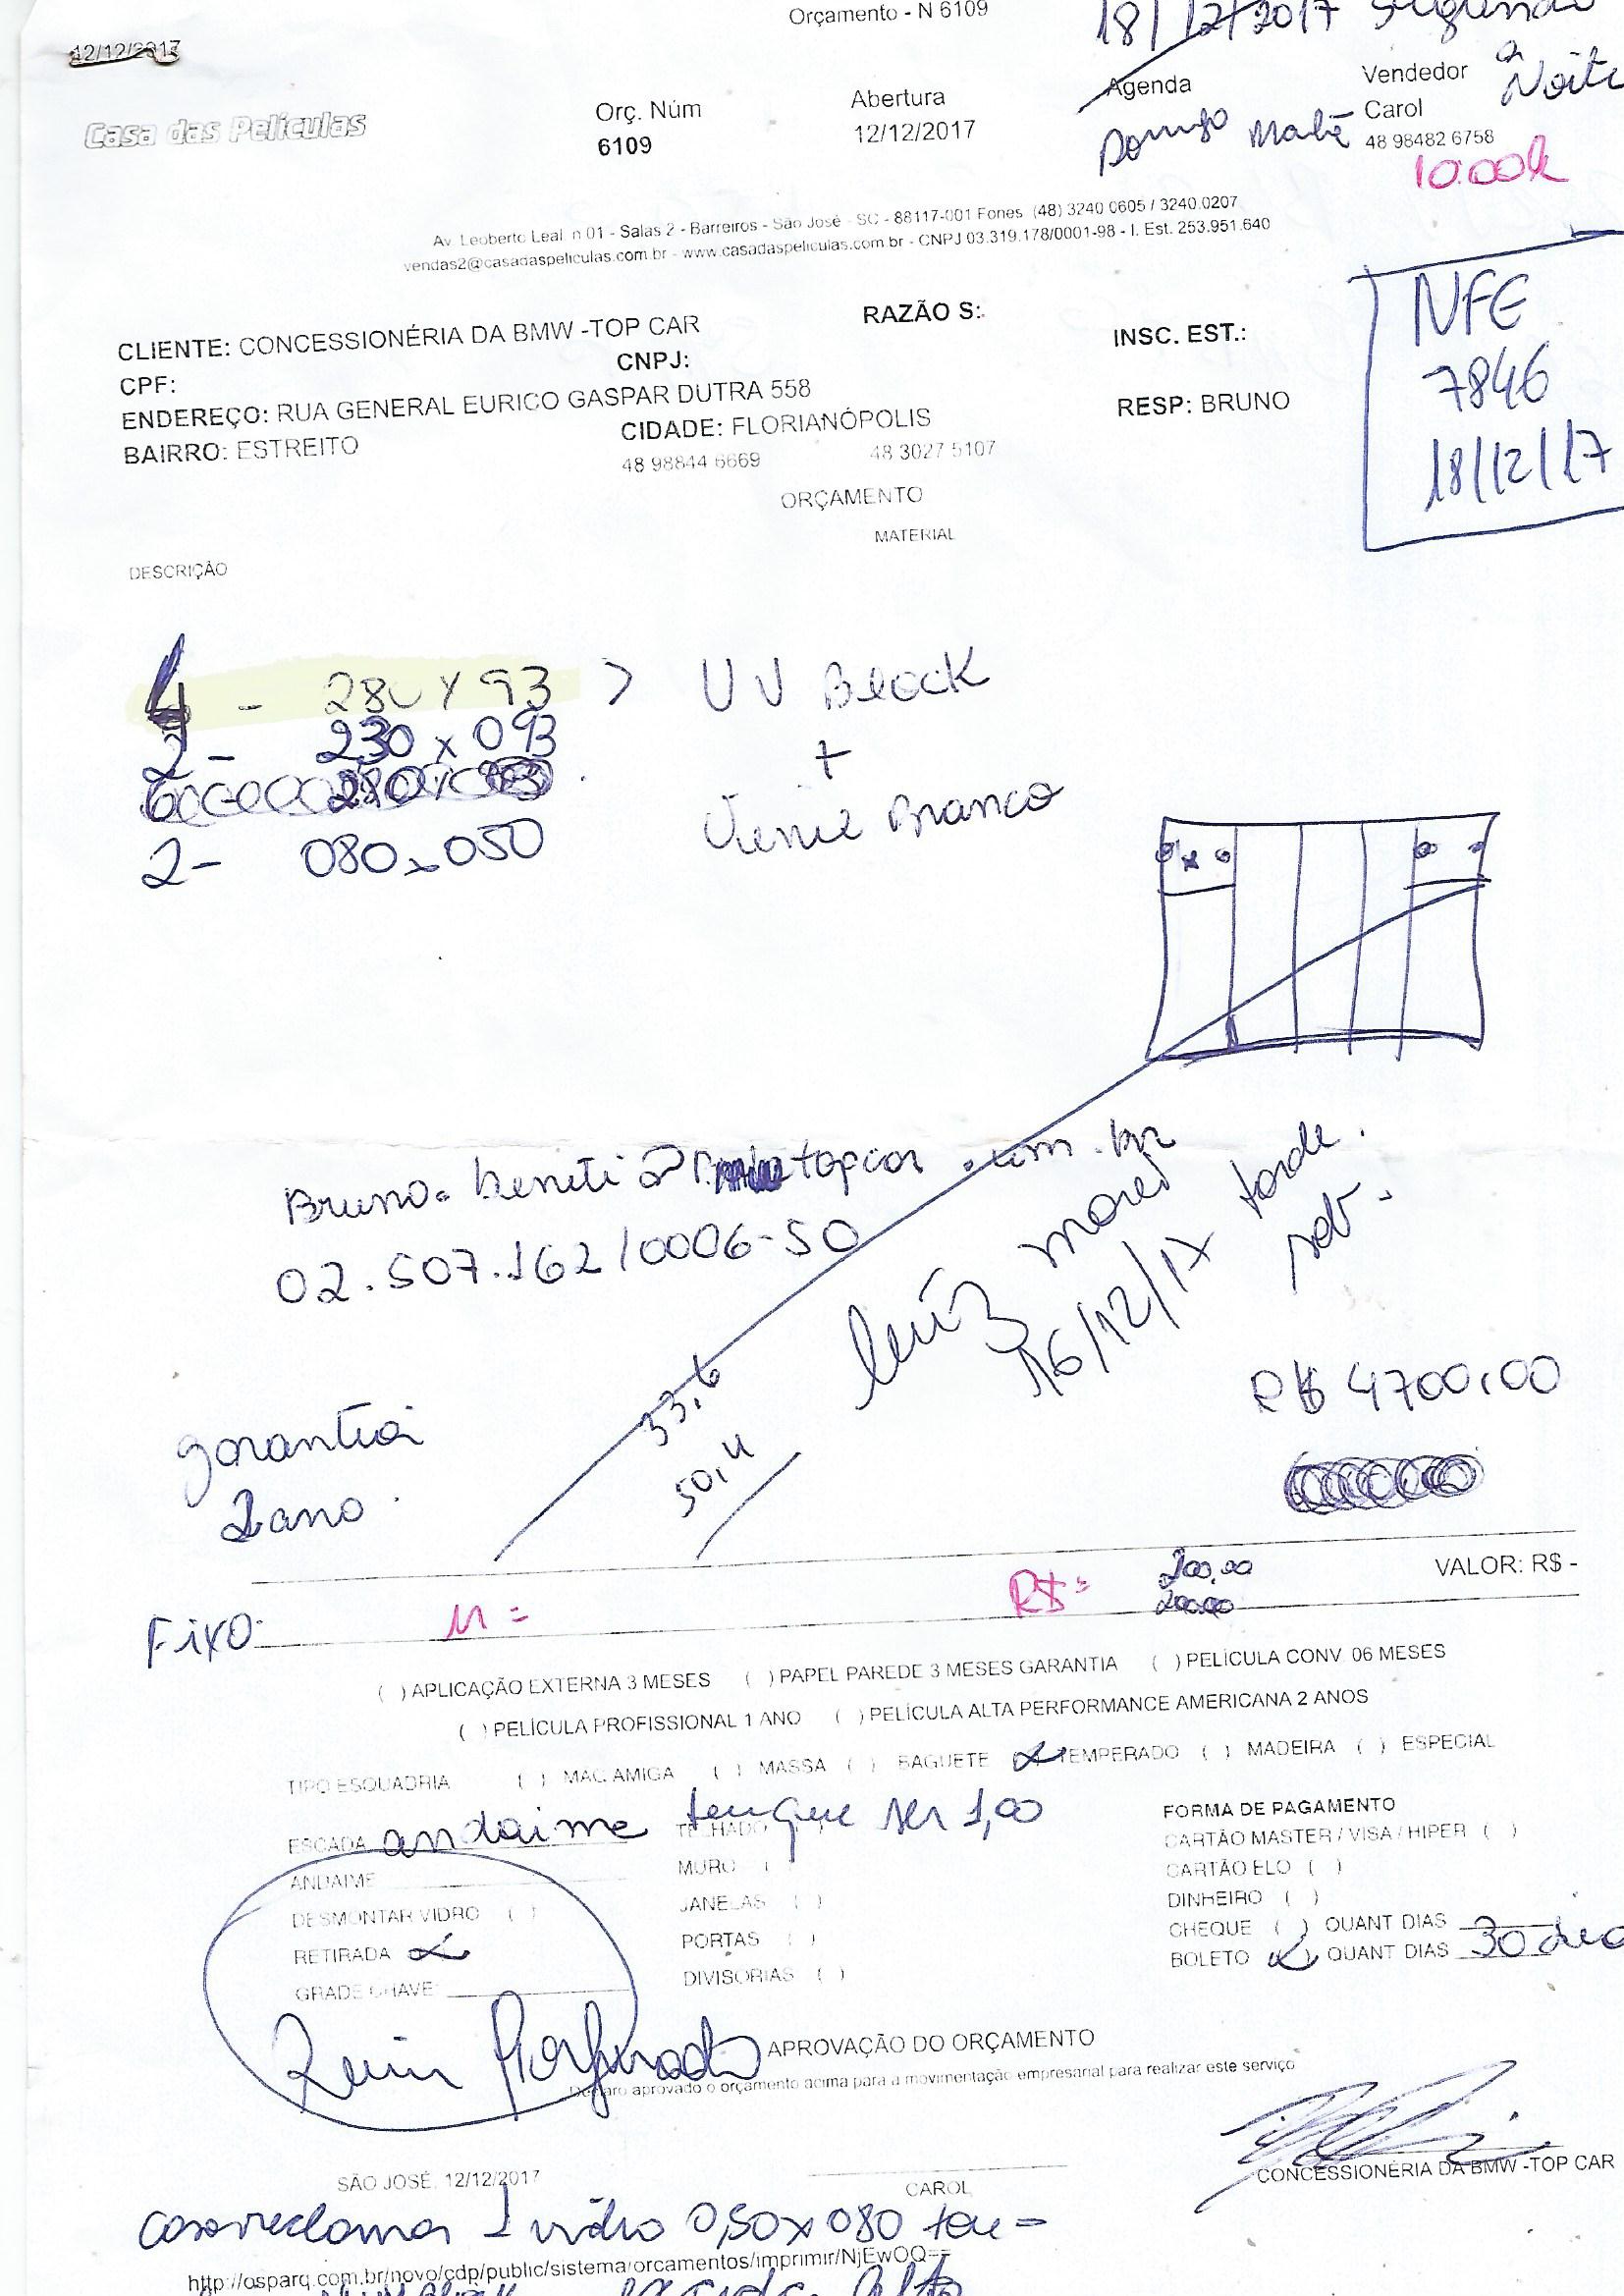 Orçamento - N 6109
18/12/2017 Segunda
12/12/2017
a Noite
Casa das Películas
Orç. Núm
6109
Abertura
12/12/2017
Agenda
Vendedor
Carol
48 98482 6758
10.00
Av. Leoberto Leal, n 01 - Salas 2 - Barreiros - São José - SC - 88117-001 Fones (48) 3240 0605 / 3240.0207
vendas2@casadaspeliculas.com.br - www.casadaspeliculas.com.br - CNPJ 03.319.178/0001-98 - I. Est. 253.951.640
NFE
7846
18/12/17
CLIENTE: CONCESSIONÉRIA DA BMW -TOP CAR
RAZÃO S:
CPF:
CNPJ:
INSC. EST.:
ENDEREÇO: RUA GENERAL EURICO GASPAR DUTRA 558
BAIRRO: ESTREITO
CIDADE: FLORIANÓPOLIS
RESP: BRUNO
48 98844 6669
48 3027 5107
ORÇAMENTO
MATERIAL
DESCRIÇÃO
4 - 280 x 93 > UV Block
2 - 230 x 093
+
2 - 080 x 050
Branco
Bruno.beneti@ topcar.com.br
02.507.162/0006-50
Luiz
16/12/17 tarde.
sab.
33,6
50,4
R$ 4700,00
garantia
2 ano.
200,00
200,00
VALOR: R$ -
Fixo:
M =
R$ =
( ) APLICAÇÃO EXTERNA 3 MESES ( ) PAPEL PAREDE 3 MESES GARANTIA ( ) PELÍCULA CONV. 06 MESES
( ) PELÍCULA PROFISSIONAL 1 ANO ( ) PELÍCULA ALTA PERFORMANCE AMERICANA 2 ANOS
TIPO ESQUADRIA ( ) MAC.AMIGA ( ) MASSA ( ) BAGUETE (x) TEMPERADO ( ) MADEIRA ( ) ESPECIAL
ESCADA andaime tem que ser 1,00
TECHADO ( )
ANDAIME
MURO ( )
DESMONTAR VIDRO ( )
JANELAS ( )
RETIRADA x
PORTAS ( )
GRADE CHAVE:
DIVISORIAS ( )
FORMA DE PAGAMENTO
CARTÃO MASTER / VISA / HIPER ( )
CARTÃO ELO ( )
DINHEIRO ( )
CHEQUE ( ) QUANT DIAS
BOLETO (x) QUANT DIAS 30 dia
APROVAÇÃO DO ORÇAMENTO
Declaro aprovado o orçamento acima para a movimentação empresarial para realizar este serviço
SÃO JOSÉ, 12/12/2017
CAROL
CONCESSIONÉRIA DA BMW -TOP CAR
1 vidro 0,50 x 080
http://osparq.com.br/novo/cdp/public/sistema/orcamentos/imprimir/NjEwOQ==